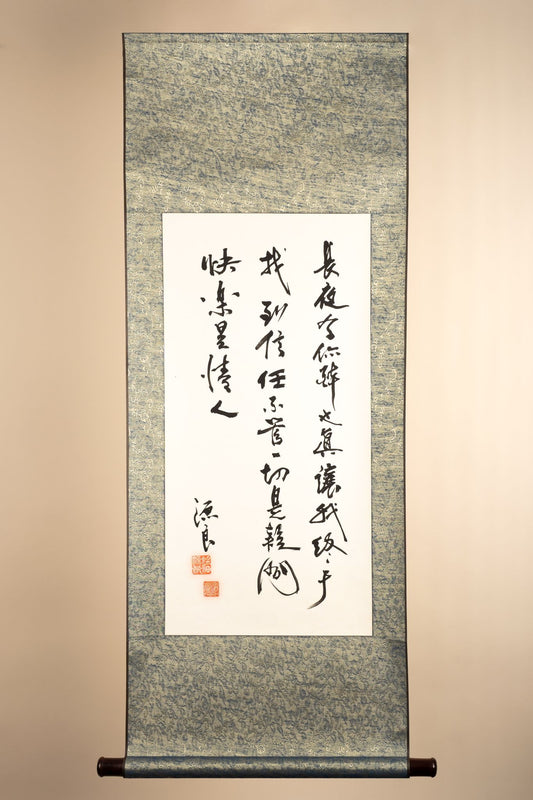 長夜為你醉也真讓我終于
找到信任不管一切是疑問
快樂是情人
源良